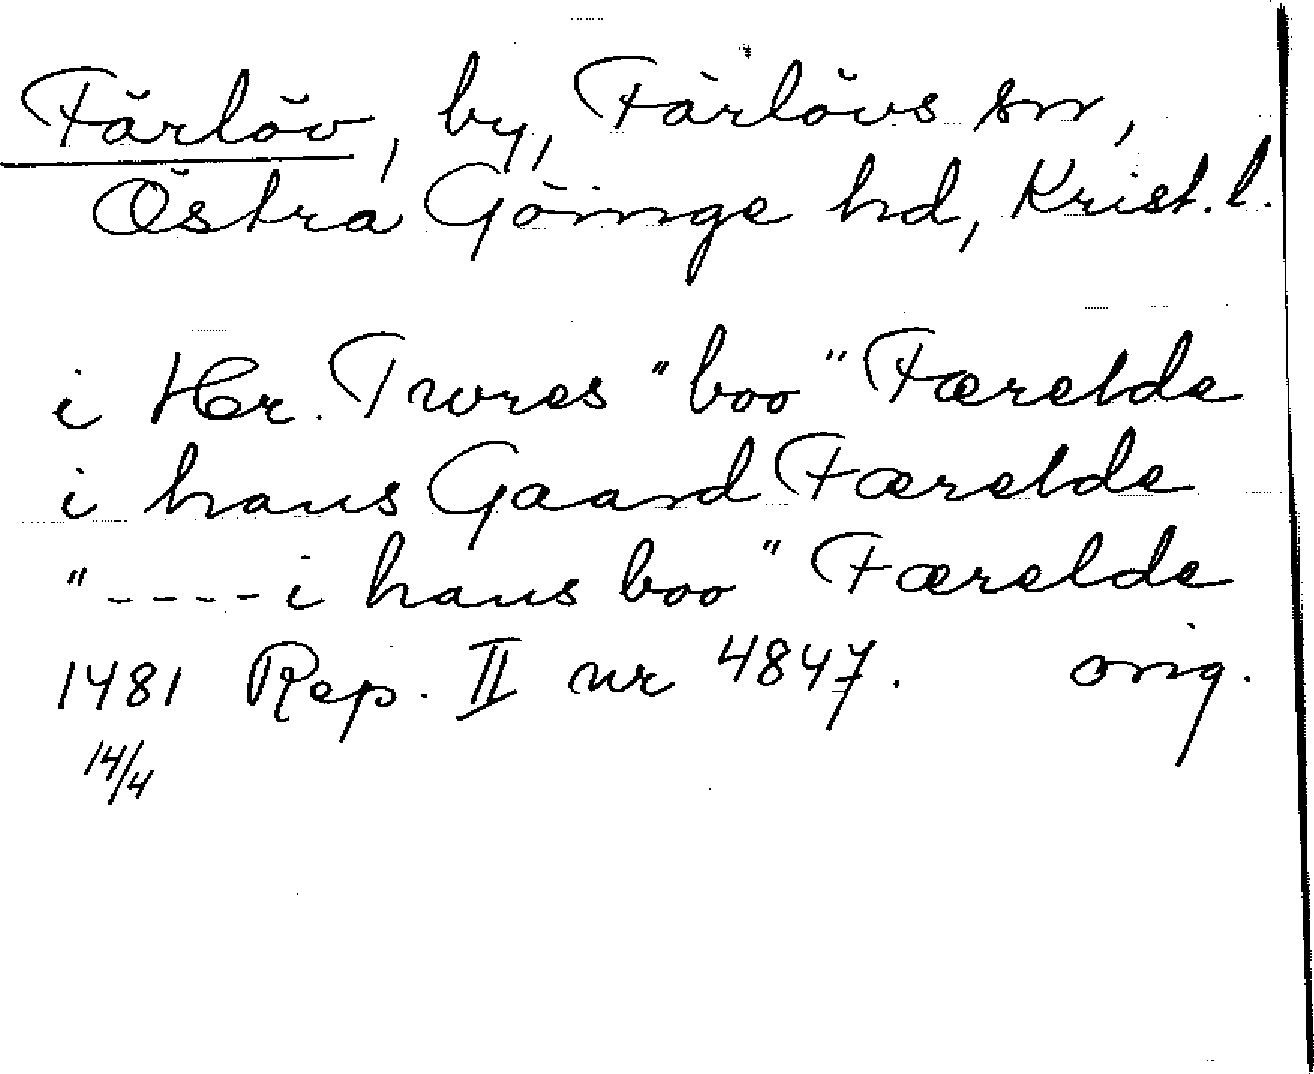 Färlöv, by, Färlövs sn,
Östra Göinge hd, Krist. l.
i Hr. Twres "boo" Færelde
i hans Gaard Færelde
"---- i hans boo" Færelde
1481 Rep. II nr 4847. orig.
14/4